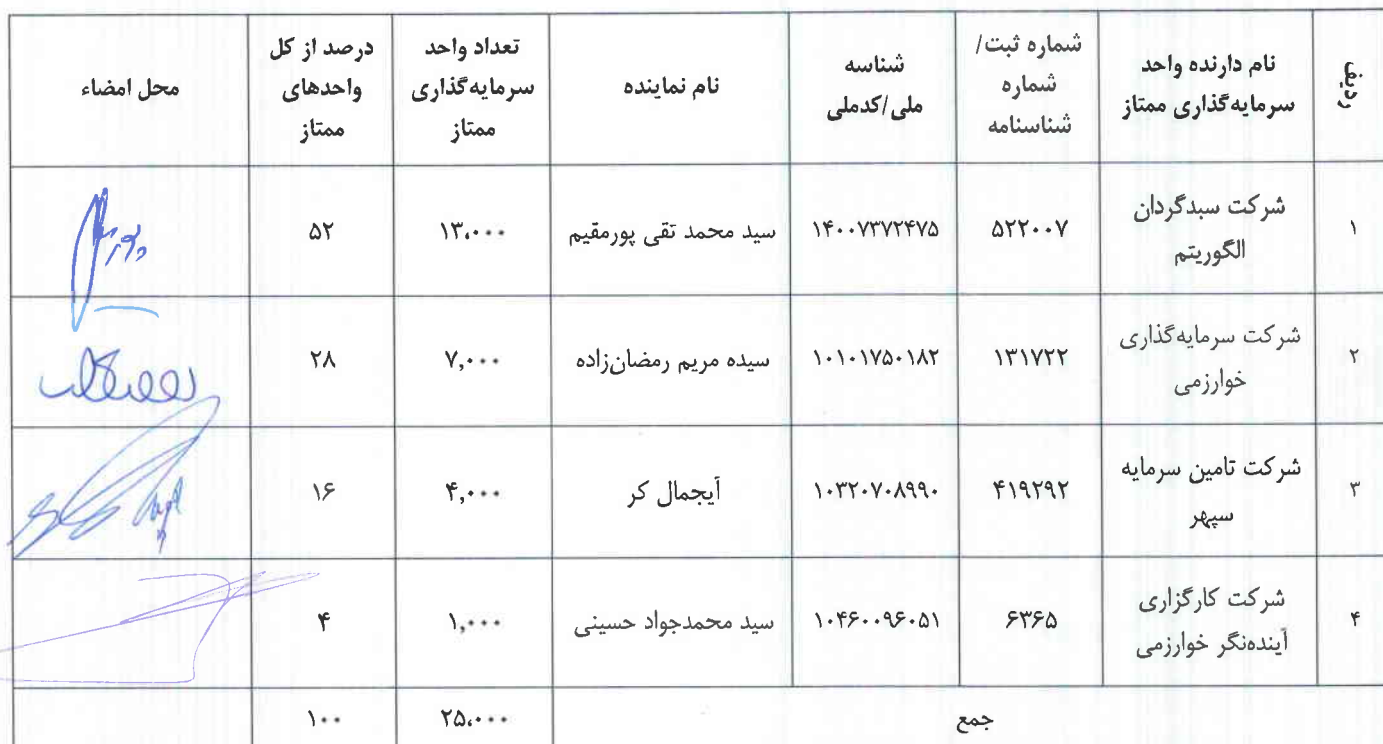 ردیف
نام دارنده واحد
سرمایه‌گذاری ممتاز
شماره ثبت/
شماره
شناسنامه
شناسه
ملی/کدملی
نام نماینده
تعداد واحد
سرمایه‌گذاری
ممتاز
درصد از کل
واحدهای
ممتاز
محل امضاء
۱
شرکت سبدگردان
الگوریتم
۵۲۲۰۰۷
۱۴۰۰۷۳۷۲۴۷۵
سید محمد تقی پورمقیم
۱۳،۰۰۰
۵۲
۲
شرکت سرمایه‌گذاری
خوارزمی
۱۳۱۷۲۲
۱۰۱۰۱۷۵۰۱۸۲
سیده مریم رمضان‌زاده
۷,۰۰۰
۲۸
۳
شرکت تامین سرمایه
سپهر
۴۱۹۲۹۲
۱۰۳۲۰۷۰۸۹۹۰
آیجمال کر
۴,۰۰۰
۱۶
۴
شرکت کارگزاری
آینده‌نگر خوارزمی
۶۳۶۵
۱۰۴۶۰۰۹۶۰۵۱
سید محمدجواد حسینی
۱,۰۰۰
۴
جمع
۲۵،۰۰۰
۱۰۰